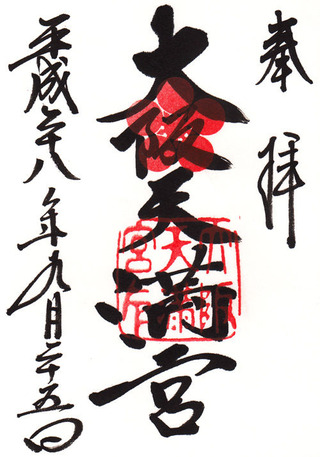 奉拝
大阪天満宮
平成二十八年九月二十五日